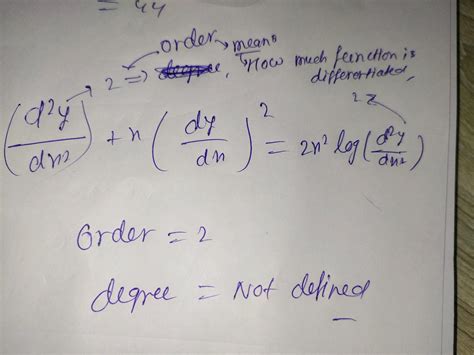 = 44
order → means
2 ⇒ degree, How much function is
differentiated,
(d²y/dx²) + x (dy/dx)² = 2x² log(d²y/dx²)
Order = 2
degree = Not defined